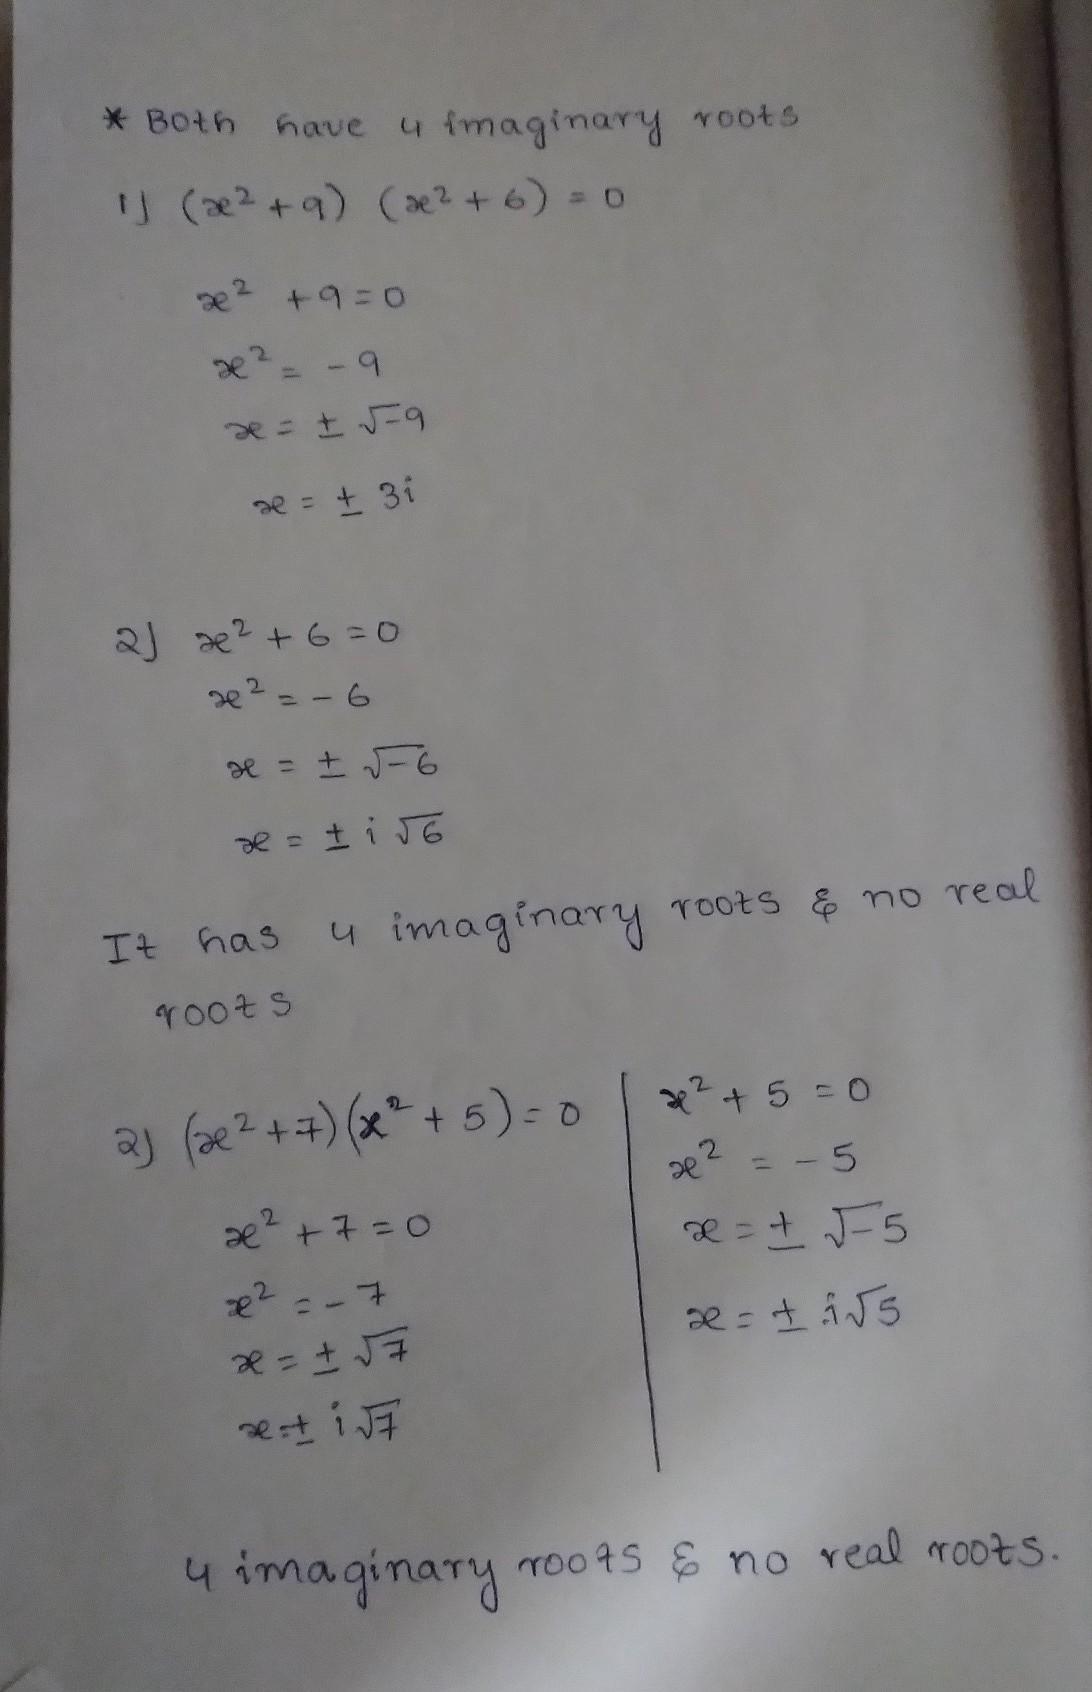 * Both have 4 imaginary roots
1) (x² + 9) (x² + 6) = 0
x² + 9 = 0
x² = - 9
x = ± √-9
x = ± 3i
2) x² + 6 = 0
x² = - 6
x = ± √-6
x = ± i √6
It has 4 imaginary roots & no real
roots
2) (x² + 7)(x² + 5) = 0
x² + 7 = 0
x² = - 7
x = ± √7
x = ± i √7
x² + 5 = 0
x² = - 5
x = ± √-5
x = ± i√5
4 imaginary roots & no real roots.